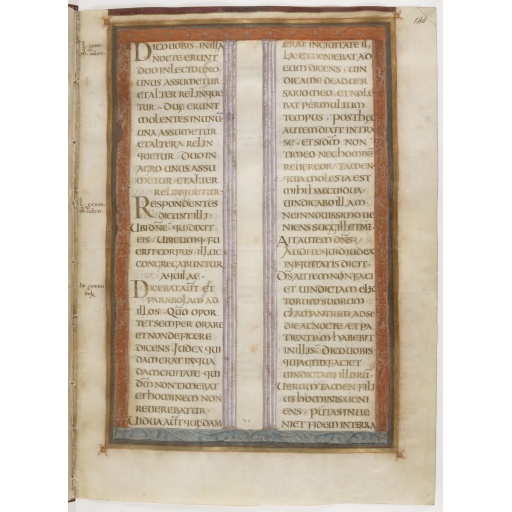 146
DICO UOBIS · IN ILLA
NOCTE ERUNT
DUO IN LECTO UNO
UNUS ASSUMETUR
ET ALTER RELINQUE
TUR · DUAE ERUNT
MOLENTES IN UNU
UNA ASSUMETUR
ET ALTERA RELIN
QUETUR · DUO IN
AGRO UNUS ASSU
METUR ET ALTER
RELINQUETUR ·
RESPONDENTES
DICUNT ILLI ·
UBI DNE · QUI DIXIT
EIS · UBICUMQ · FU
ERIT CORPUS · ILLUC
CONGREGABUNTUR
AQUILAE ·
DICEBAT AUT ET
PARABOLAM AD
ILLOS · QUO OPOR
TET SEMPER ORARE
ET NON DEFICERE
DICENS · IUDEX QUI
DAM ERAT IN QUA
DAM CIUITATE QUI
DM NON TIMEBAT
ET HOMINEM NON
REUEREBATUR ·
UIDUA AUT QUEDAM
ERAT IN CIUITATE IL
LA · ET UENIEBAT AD
EUM DICENS · UIN
DICA ME DE ADUER
SARIO MEO · ET NOLE
BAT PER MULTUM
TEMPUS · POST HEC
AUTEM DIXIT INTRA
SE · ET SI DM NON
TIMEO NEC HOMINE
REUEREOR · TAMEN
QUIA MOLESTA EST
MIHI HAEC UIDUA ·
UINDICABO ILLAM
NE IN NOUISSIMO UE
NIENS SUGGILLET ME ·
AIT AUTEM DNS ·
AUDITE QUID IUDEX
INIQUITATIS DICIT ·
DS AUTEM NON FACI
ET UINDICTAM ELEC
TORUM SUORUM
CLAMANTIUM AD SE
DIE AC NOCTE · ET PA
TIENTIAM HABEBIT
IN ILLIS · DICO UOBIS ·
QUIA CITO FACIET
UINDICTAM ILLORU ·
UERUM TAMEN FILI
US HOMINIS UENI
ENS · PUTAS INUE
NIET FIDEM IN TERRA